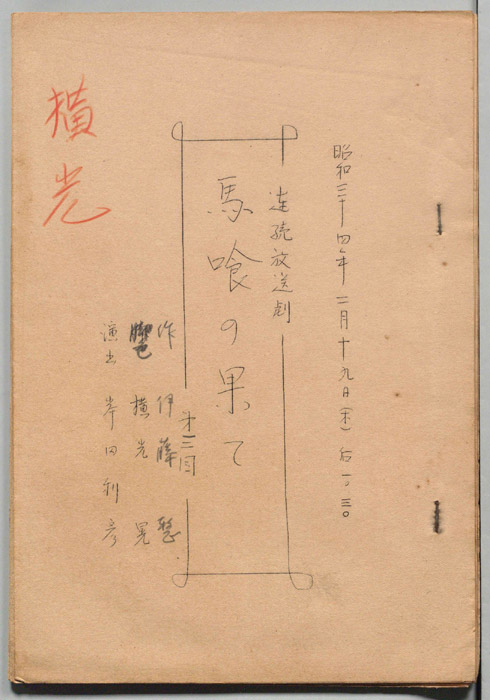 昭和三十四年二月十九日(木)后一.三〇
連続放送劇
馬喰の果て
第三回
作 伊藤 整
脚色 横光 晃
演出 岸田利彦
横光